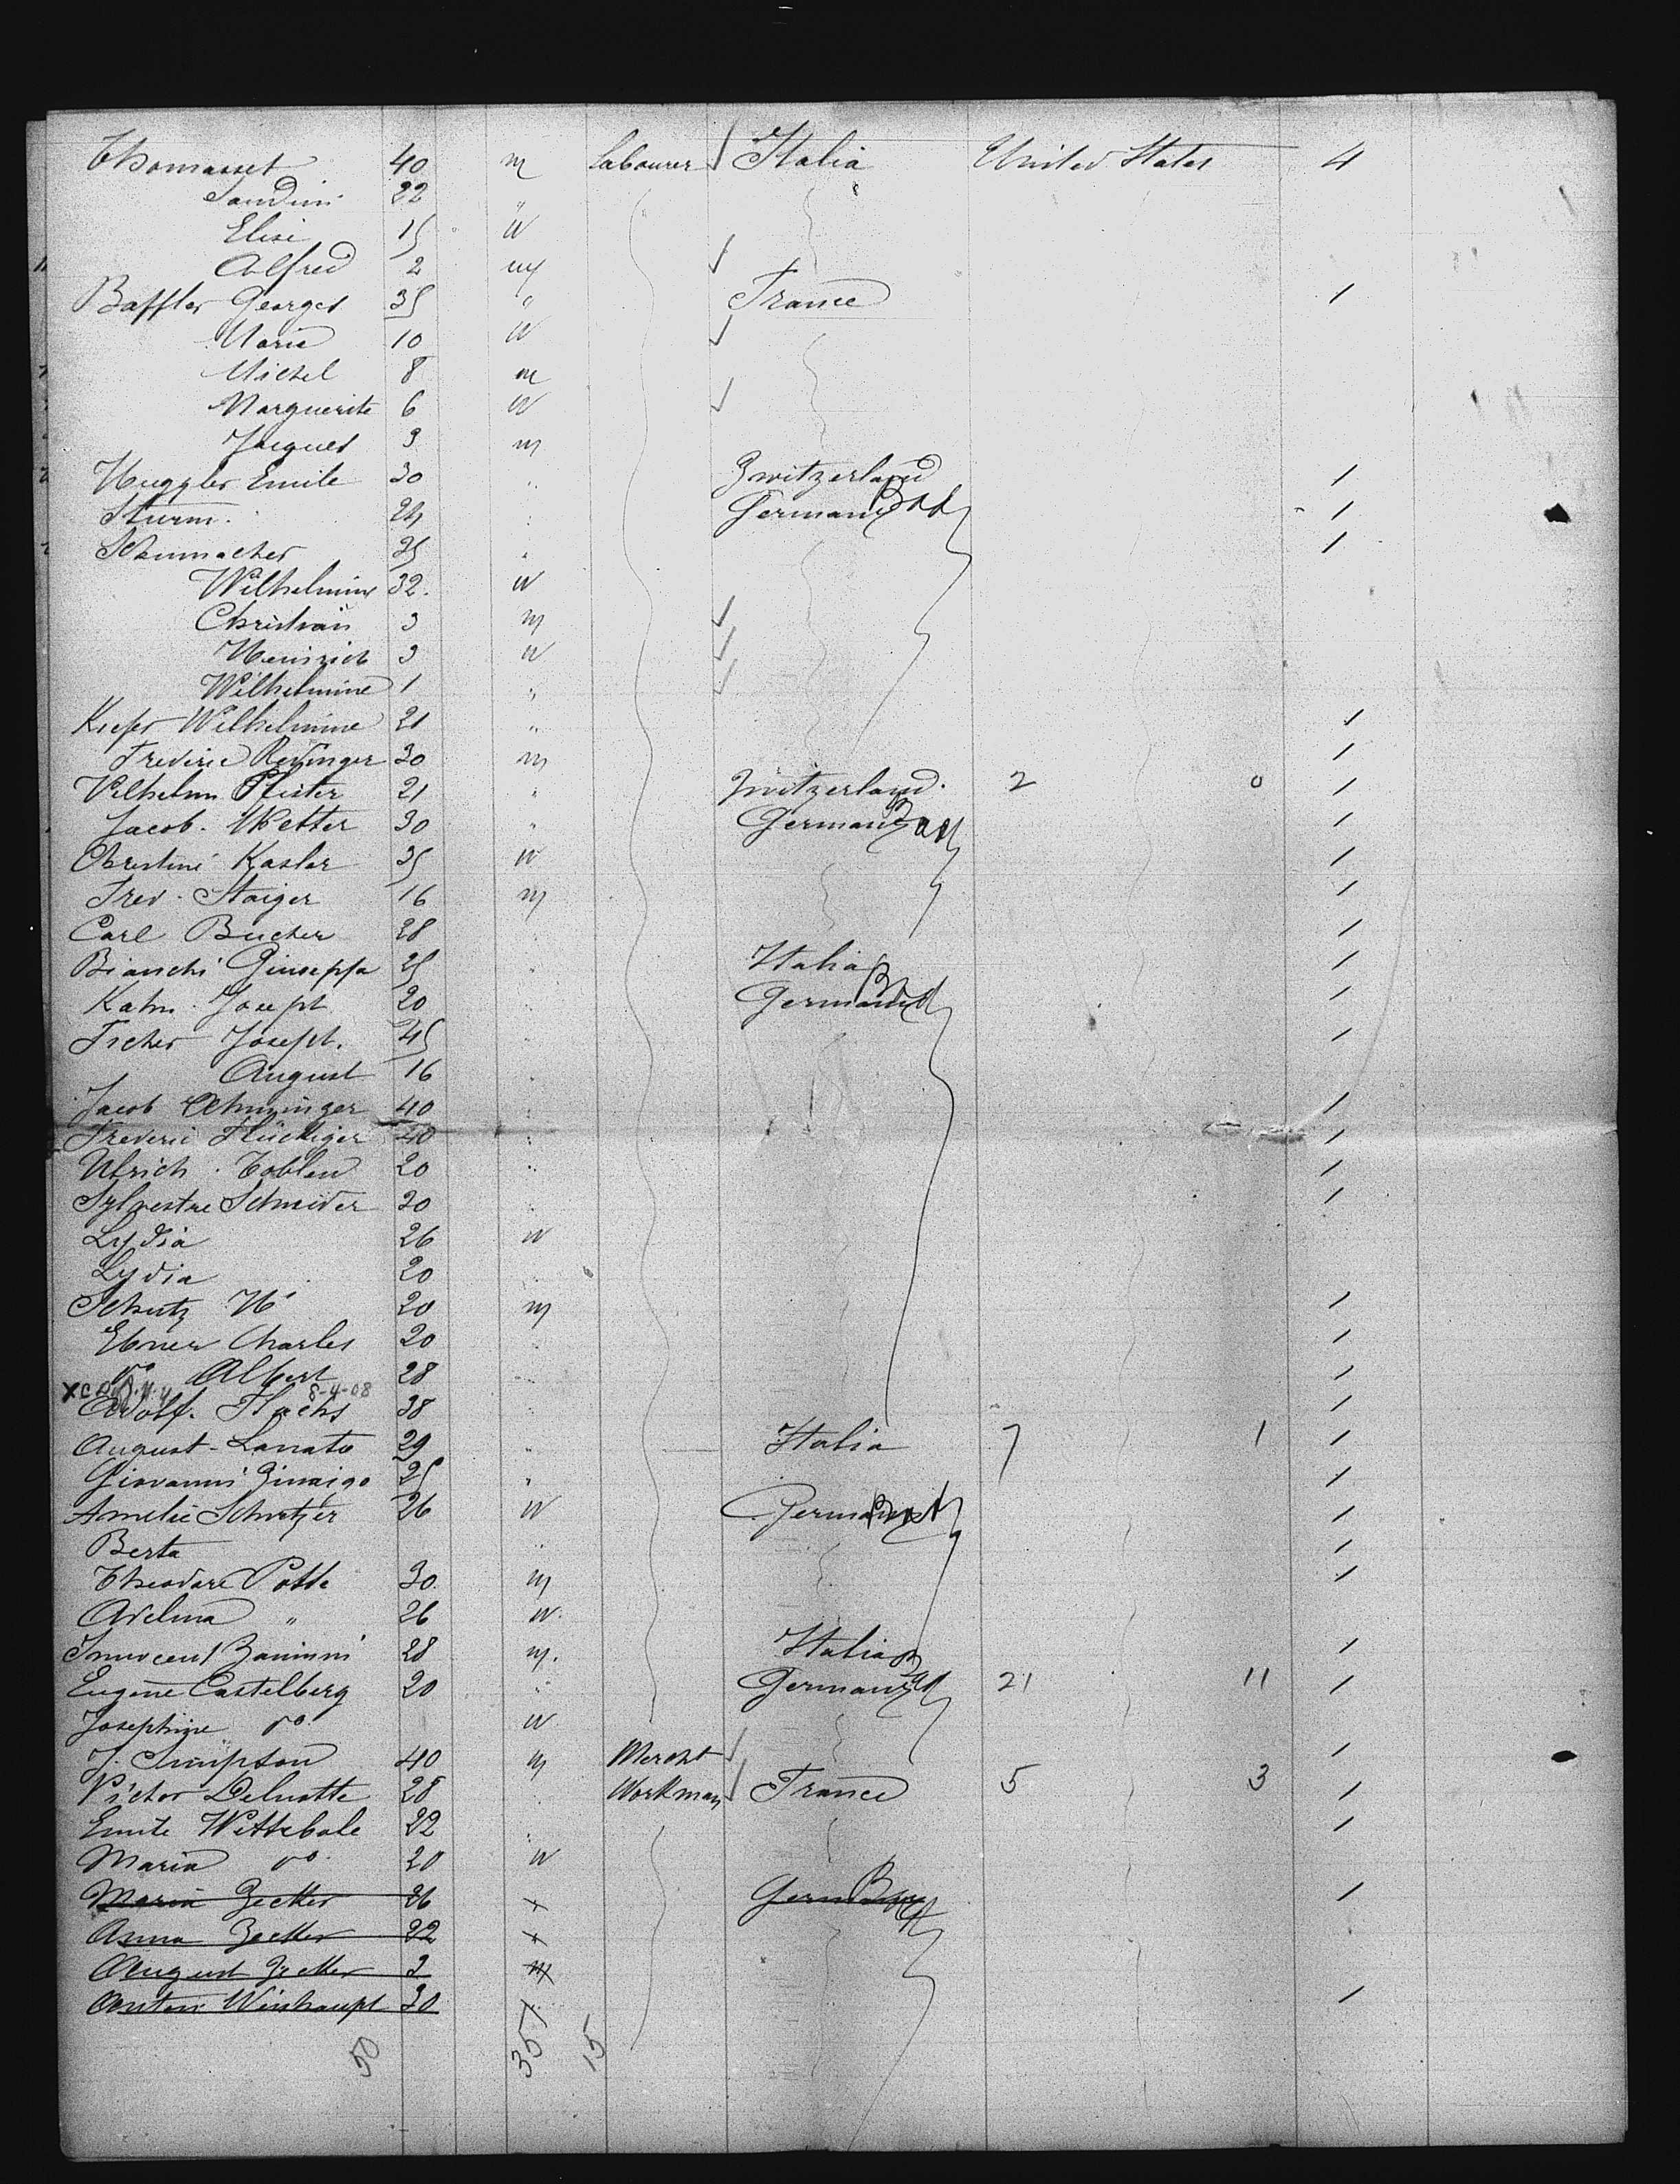 Thomasset 40 m labourer √ Italia United States 4
Sandini 22 "
Elise 15 w
Alfred 2 m √
Baffler Georges 35 " France 1
Maria 10 w √
Michel 8 m
Marguerite 6 w √
Jacques 3 m
Huggler Emile 30 " Zwitzerland 1
Sturm 24 " Germany 1
Schumacher 35 " 1
Wilhelmine 32 w
Christian 3 m √
Heinrich 3 w √
Wilhelmine 1 " √
Kiefer Wilhelmine 21 " 1
Frederic Redinger 30 m 1
Vilhelm Pfister 21 " Zwitzerland. 2 0 1
Jacob. Wetter 30 " Germany 1
Christine Kasler 35 w 1
Fred. Staiger 16 m 1
Carl Bucher 28 " 1
Bianchi Giuseppa 25 " Italia 1
Kahn Joseph 20 " Germany 1
Ficher Joseph. 45 " 1
August 16 "
Jacob 40 " 1
Frederic Flückiger 40 " 1
Ulrich. Toblen 20 " 1
Sylvestre Schneider 20 " 1
Lydia 26 w
Lydia 20 "
Schutz H 20 m 1
Ebner Charles 20 " 1
do Albert 28 " 1
8-4-08
Adolf. Flachs 38 " 1
August Lanato 29 " Italia 7 1 1
Giovanni Zinaigo 25 " 1
Amelie Schwtzer 26 w Germany 1
Berta " 1
Theodore Potte 30 m 1
Adelina " 26 w
Innocent Zaninni 28 m. Italia 1
Eugene Castelberg 20 " Germany 21 11 1
Josephine do w
J. Simpson 40 m Mercht √ 1
Victor Delnatte 28 " Workman √ France 5 3 1
Emile Wittebole 22 " 1
Maria do 20 w
Maria Zecker 26 1
Anna Zecker 22
August Zecker 3 m
Anton Winhaupt 30 1
50 35 15